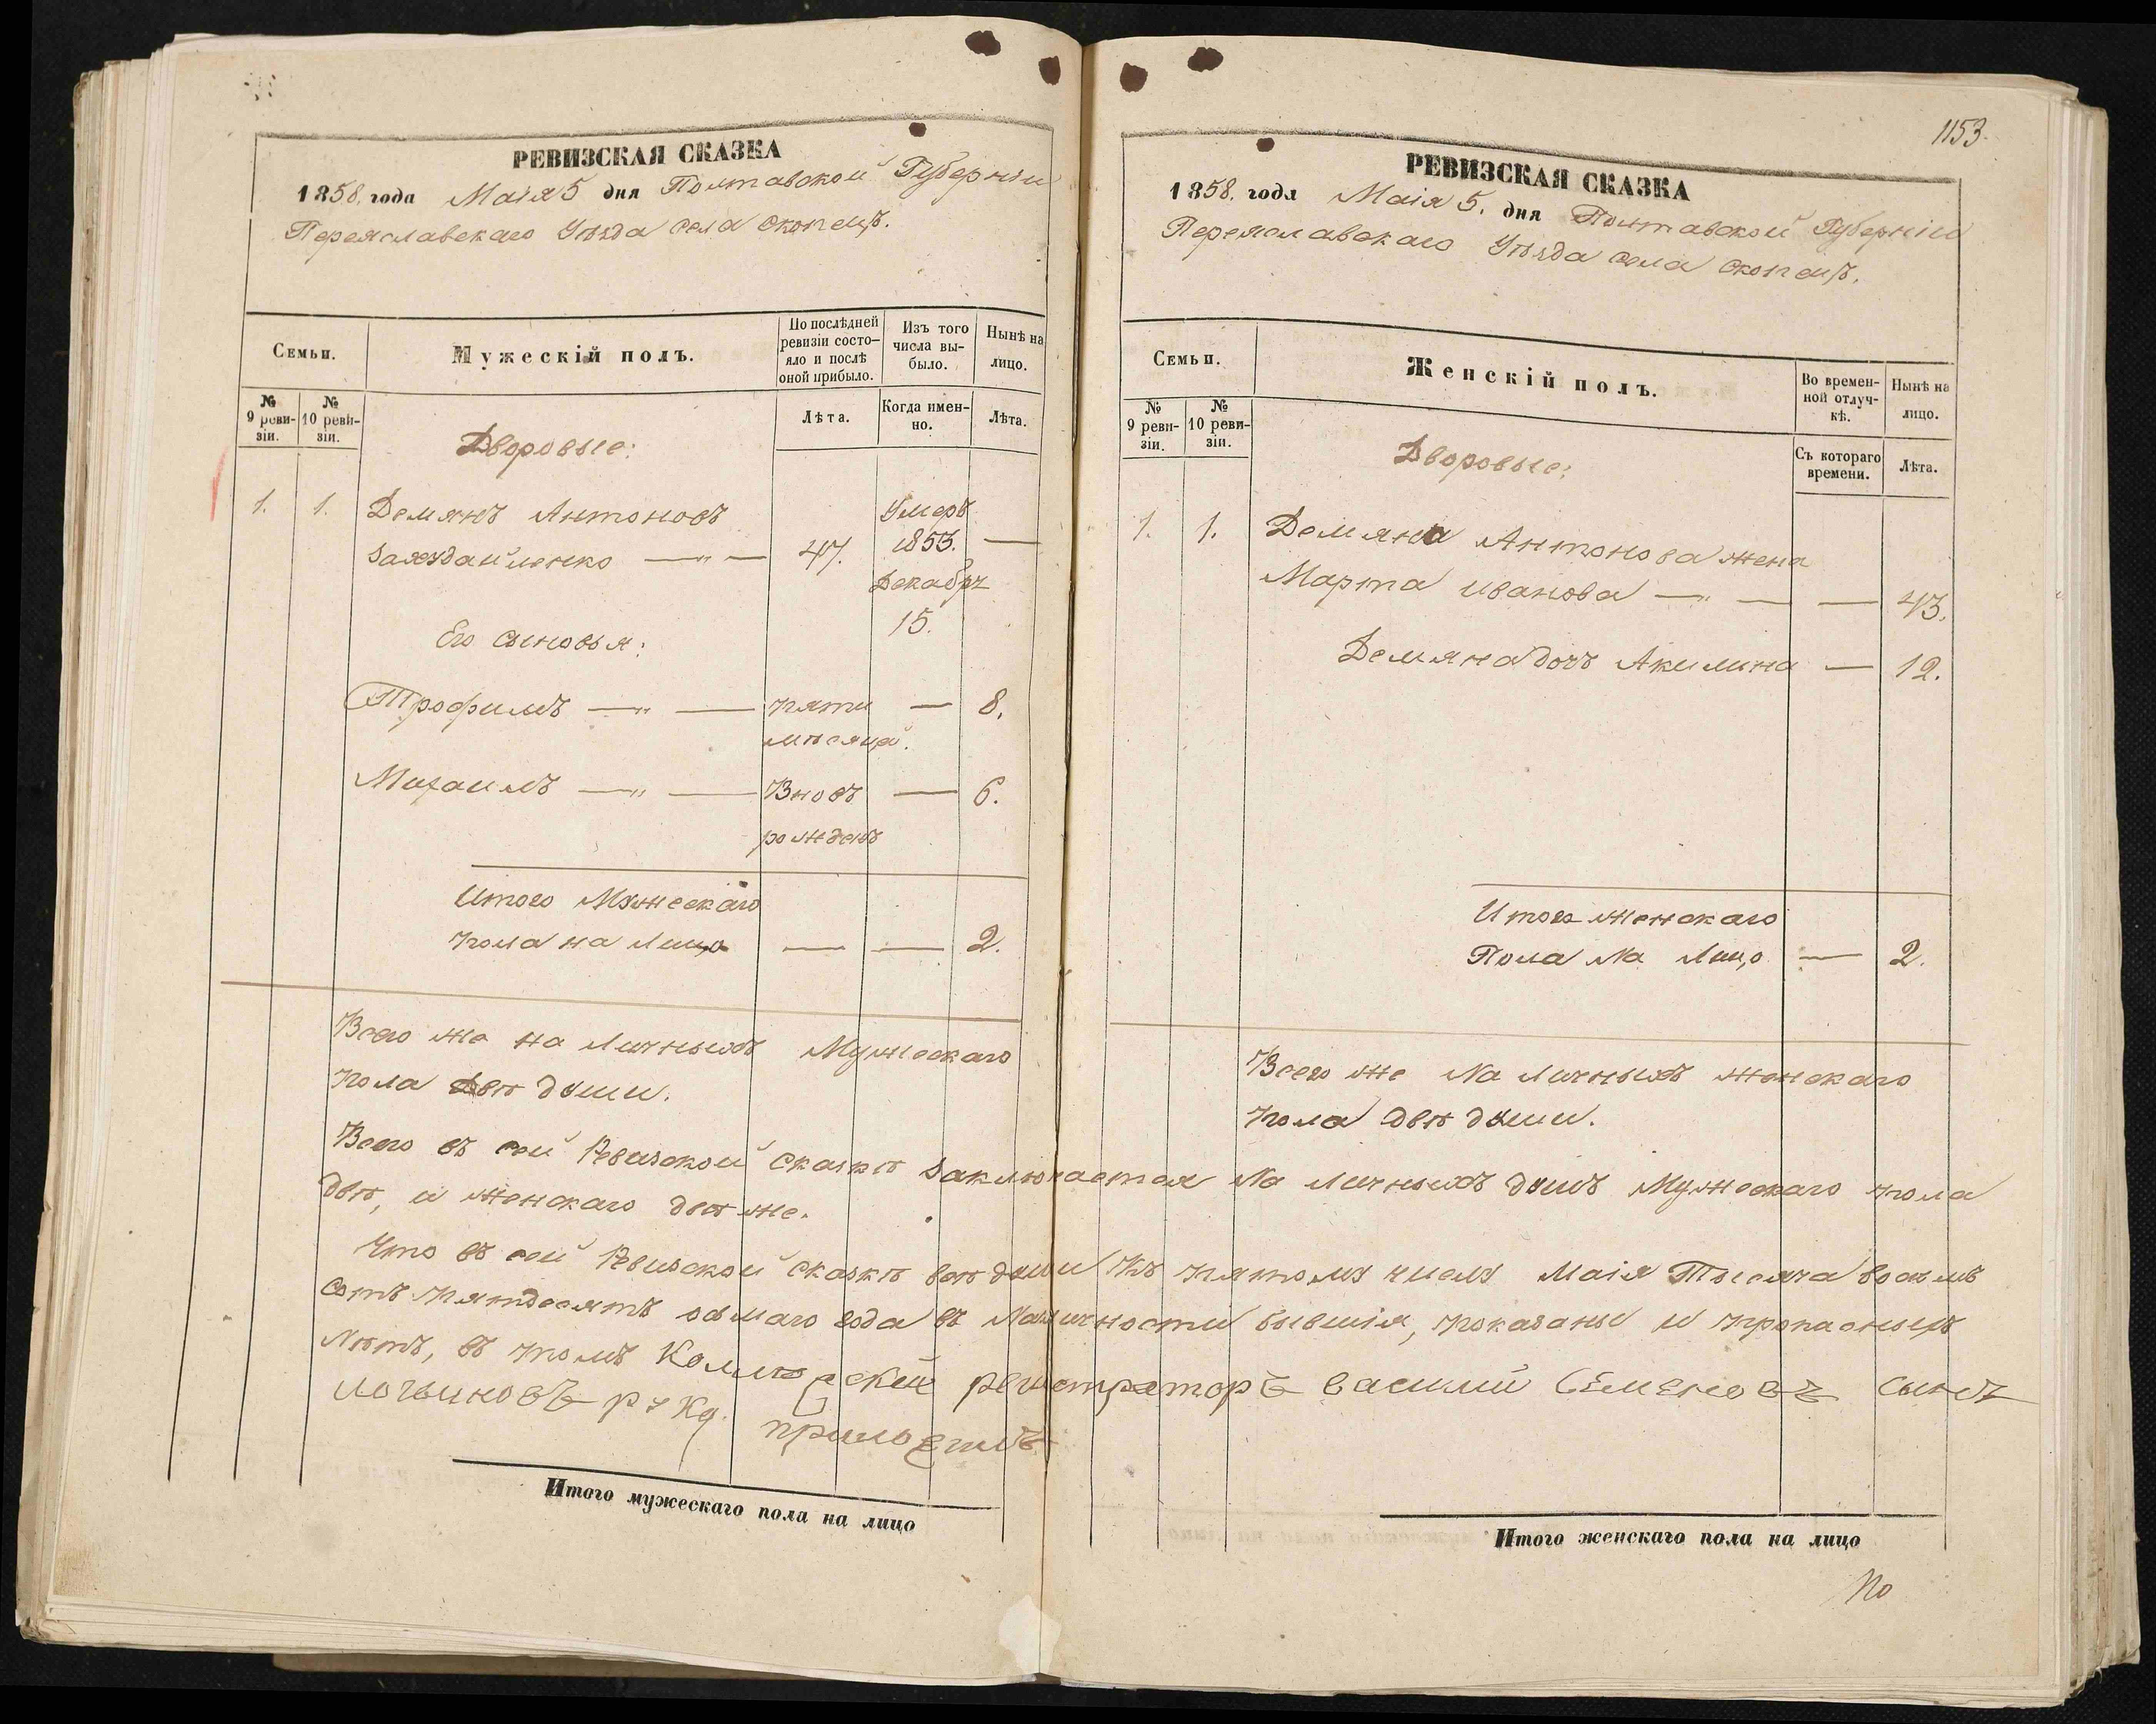 РЕВИЗСКАЯ СКАЗКА
1858. года Маія 5 дня Полтавской Губерніи
Переяславскаго Уѣзда села Скопецъ.
Семьи.
Мужескій полъ.
По послѣдней ревизіи состо-
яло и послѣ
оной прибыло.
Изъ того
числа вы-
было.
Нынѣ на
лицо.
№
9 реви-
зіи.
№
10 реви-
зіи.
Лѣта.
Когда имен-
но.
Лѣта.
Дворовые:
1. 1. Демянъ Антоновъ Умеръ
47. 1853. —
Декабря
15.
Его сыновья:
Трофимъ —„— пяти — 8.
мѣсяцъ.
Михаилъ —„— Вновь — 6.
рожденъ
Итого Мужескаго
пола на лицо — — 2.
Всего же на личныхъ Мужескаго
пола двѣ души.
РЕВИЗСКАЯ СКАЗКА
1153.
1858. года Маія 5. дня Полтавской Губерніи
Переяславскаго Уѣзда села Скопецъ.
Семьи.
Женскій полъ.
Во времен-
ной отлуч-
кѣ.
Нынѣ на
лицо.
№
9 реви-
зіи.
№
10 реви-
зіи.
Съ котораго
времени.
Лѣта.
Дворовые:
1. 1. Демяна Антонова жена
Марта Иванова —„— — 43.
Демяна дочь Акилина — 12.
Итого женскаго
Пола На Лицо — 2.
Всего же На личныхъ женскаго
пола двѣ души.
Всего въ сей Ревизской сказкѣ заключается На личныхъ душъ Мужескаго пола
двѣ, и женскаго двѣ же.
Что въ сей Ревизской сказкѣ всѣ души Къ пятому числу Маія Тысяча восемъ
сотъ пятдесятъ осьмаго года въ Наличности бывшія, показаны и пропасныхъ
Нѣтъ, въ томъ Колежский регистраторъ Василий Семеновъ сынъ
Логвиновъ руку приложилъ
Итого мужескаго пола на лицо
Итого женскаго пола на лицо
По